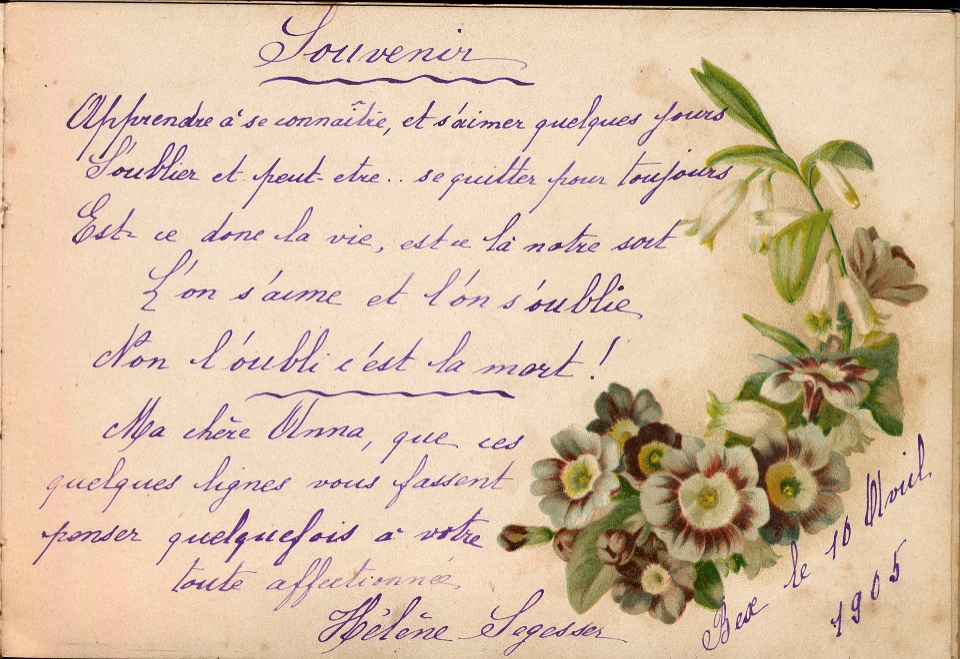 Souvenir
Apprendre à se connaître, et s'aimer quelques jours
S'oublier et peut-etre.. se quitter pour toujours
Est-ce donc la vie, est ce là notre sort
L'on s'aime et l'on s'oublie
Non l'oubli c'est la mort!
Ma chère Anna, que ces
quelques lignes vous fassent
penser quelquefois à votre
toute affectionnée
Hélène Segesser
Bex le 16 Avril
1905